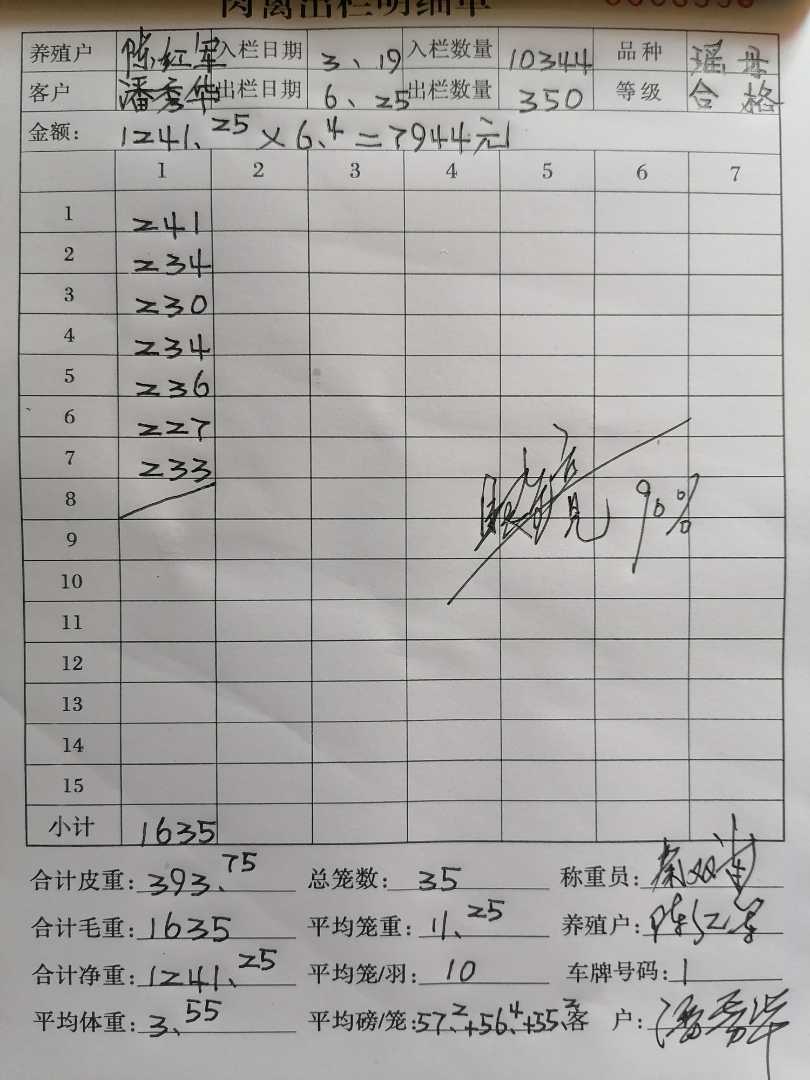 肉禽出栏明细单
养殖户 陈红军 入栏日期 3、19 入栏数量 10344 品种 瑶母
客户 潘秀华 出栏日期 6、25 出栏数量 350 等级 合格
金额: 1241.25×6.4=7944元
1 2 3 4 5 6 7
1 241
2 234
3 230
4 234
5 236
6 227
7 233
8
9 90%
10
11
12
13
14
15
小计 1635
合计皮重: 393.75 总笼数: 35 称重员:
合计毛重: 1635 平均笼重: 11.25 养殖户: 陈红军
合计净重: 1241.25 平均笼/羽: 10 车牌号码: 1
平均体重: 3.55 平均磅/笼: 57.2+56.4+55.2 客户: 潘秀华